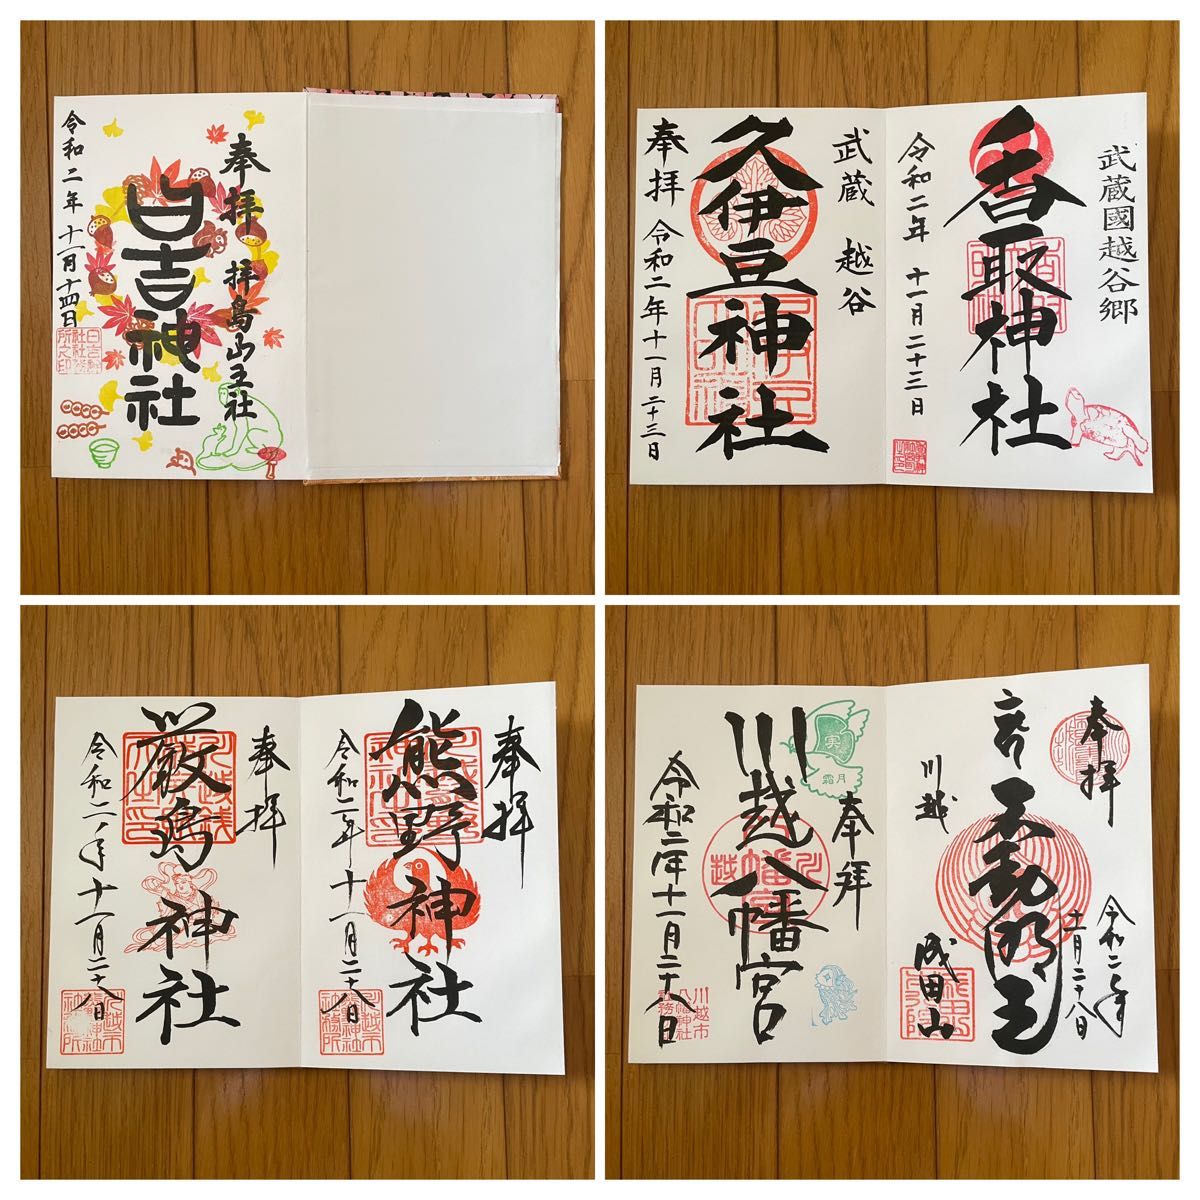 奉拝 拝島山王社
日吉神社
令和二年 十一月十四日
武蔵國越谷郷
香取神社
令和二年 十一月二十三日
武蔵 越谷
久伊豆神社
奉拝 令和二年十一月二十三日
奉拝
熊野神社
令和二年十一月二十八日
奉拝
厳島神社
令和二年十一月二十八日
奉拝
令和二年十一月二十八日
不動明王
川越
成田山
実
霜月
奉拝
川越八幡宮
令和二年十一月二十八日